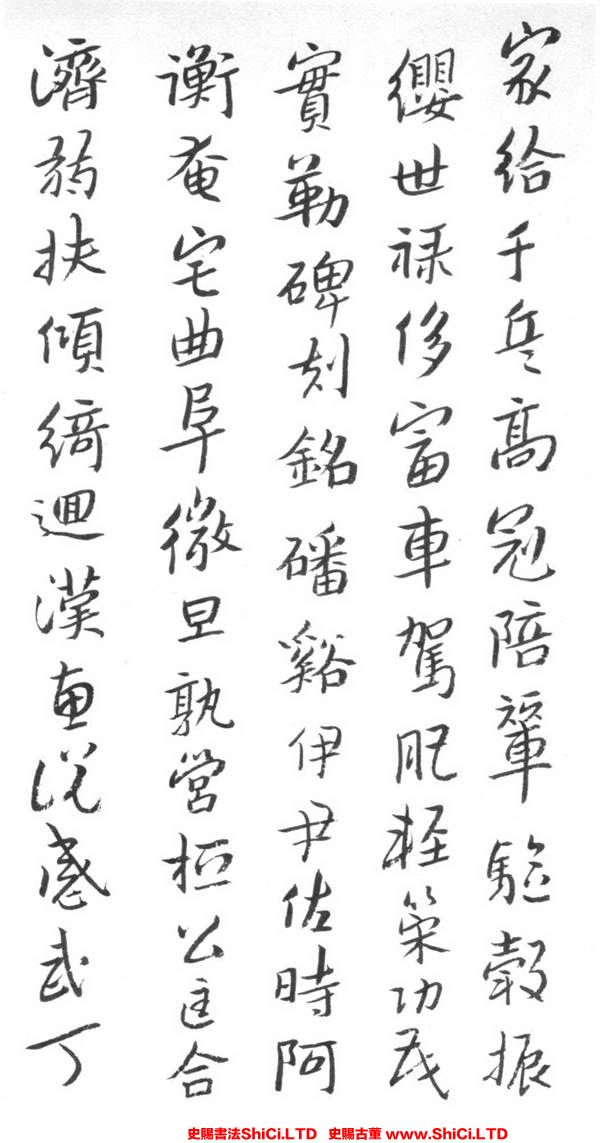 家給千兵高冠陪輦驅轂振
纓世祿侈富車駕肥輕策功茂
實勒碑刻銘磻谿伊尹佐時阿
衡奄宅曲阜微旦孰營桓公匡合
濟弱扶傾綺迴漢惠說感武丁
史賜書法ShiCi.LTD 史賜古董 www.ShiCi.LTD